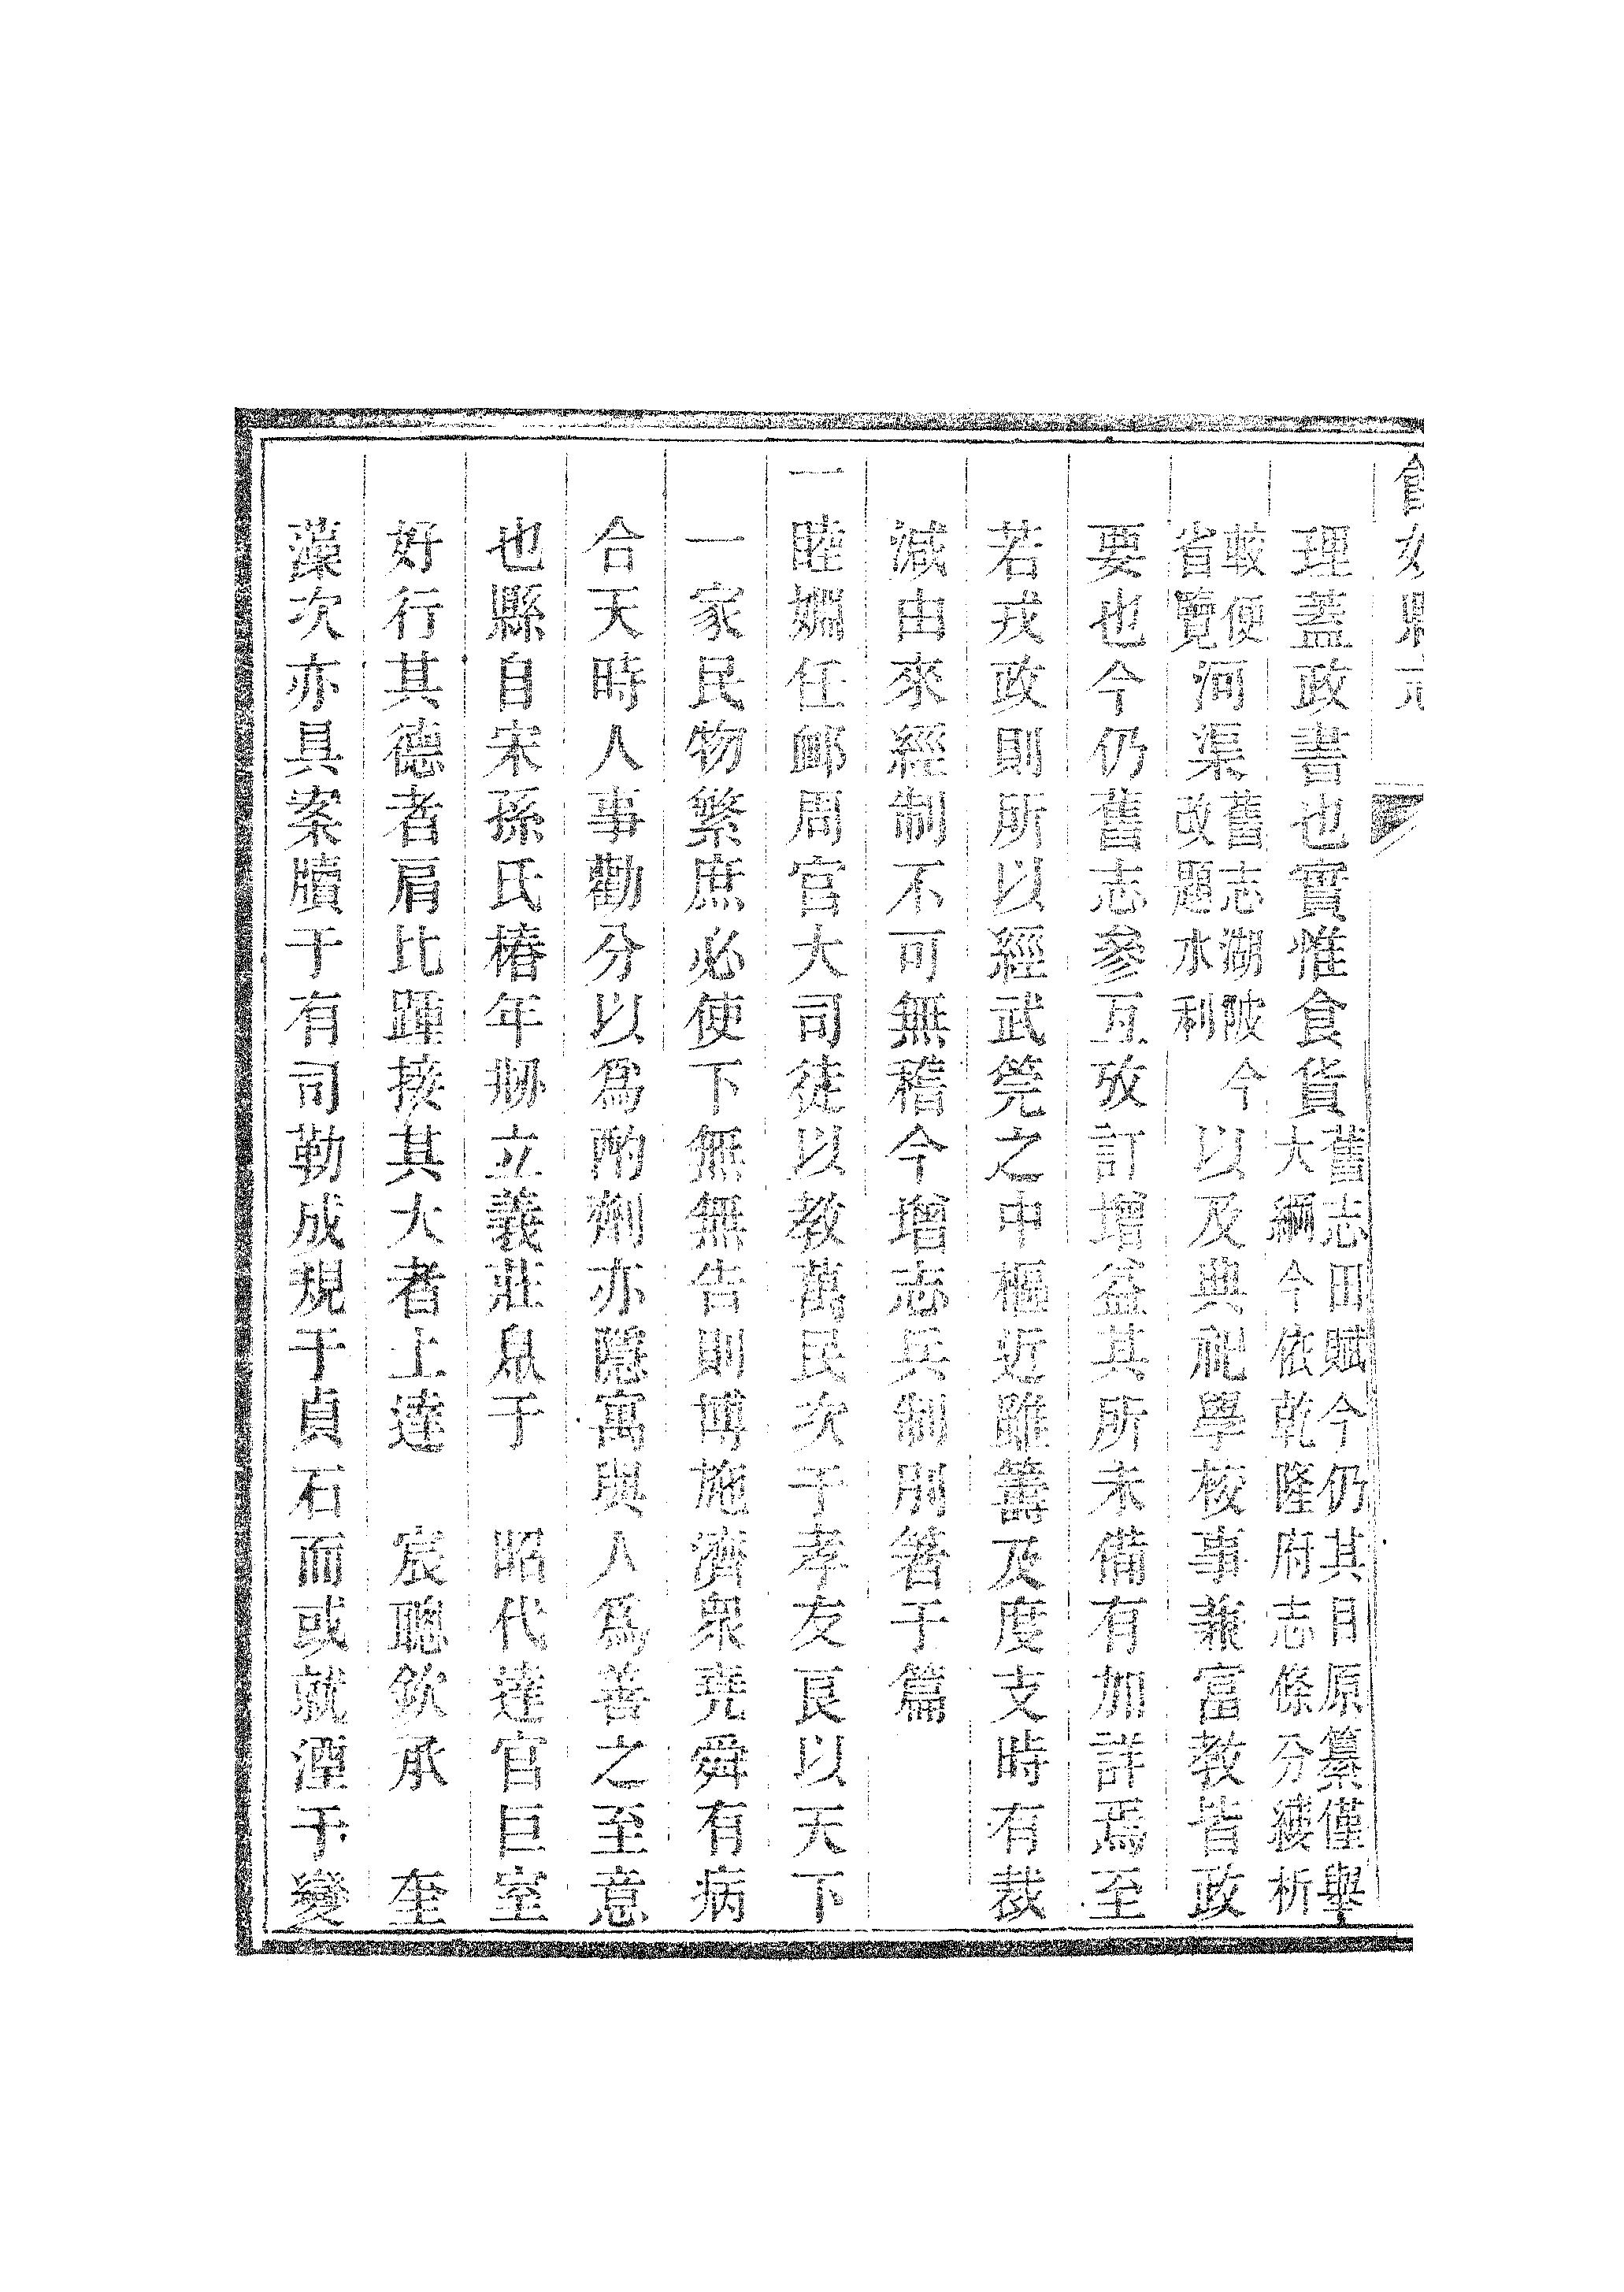 理蓋政書也實惟食貨舊志田賦今仍其目原纂僅舉大綱今依乾隆府志條分縷析
敢便省覽河渠舊志湖陂今改題水利以及典祀學校事兼富教皆政
要也今仍舊志參互攷訂增益其所未備有加詳焉至
若戎政則所以經武筦之中樞近雖籌及度支時有裁
減由來經制不可無稽今增志兵制別箸于篇
一睦婣任卹周官大司徒以教萬民次于孝友良以天下
一家民物繁庶必使下無無告則博施濟衆堯舜有病
合天時人事勸分以爲酌劑亦隱寓與人爲善之至意
也縣自宋孫氏椿年刱立義莊臮于 昭代達官巨室
好行其德者肩比踵接其大者上達 宸聰欽承 奎
藻次亦具案牘于有司勒成規于貞石而或就湮于變